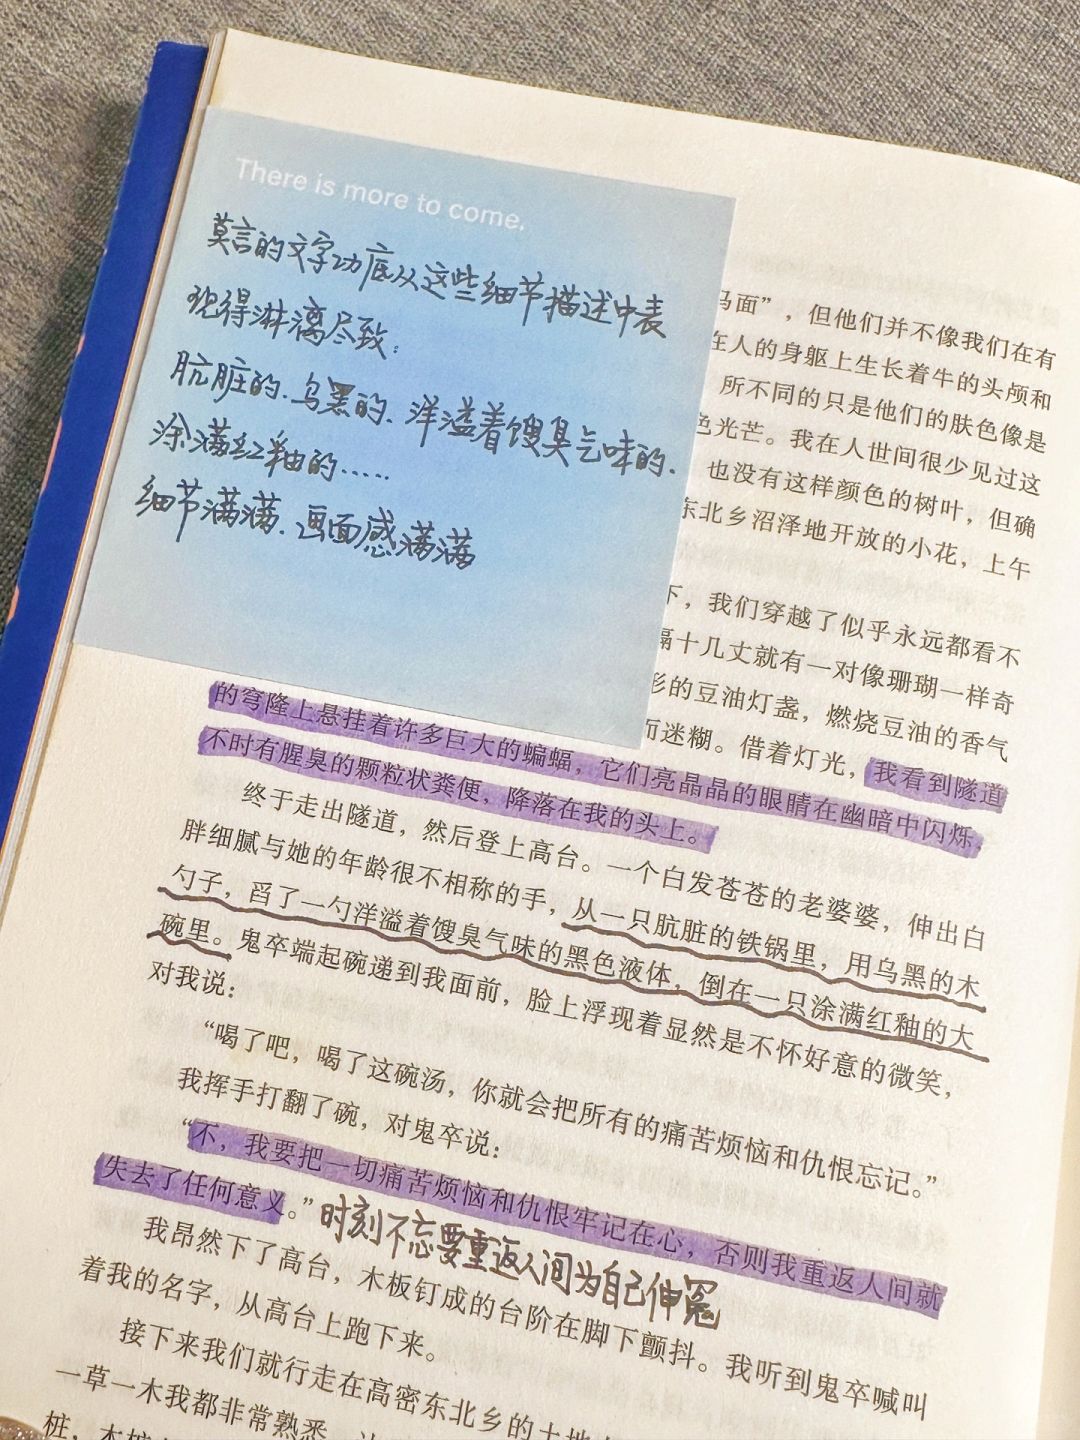 There is more to come.
莫言的文字功底从这些细节描述中表
现得淋漓尽致：
肮脏的、乌黑的、洋溢着馊臭气味的、
涂满红釉的……
细节满满、画面感满满
马面”，但他们并不像我们在有
在人的身躯上生长着牛的头颅和
所不同的只是他们的肤色像是
色光芒。我在人世间很少见过这
也没有这样颜色的树叶，但确
东北乡沼泽地开放的小花，上午
下，我们穿越了似乎永远都看不
隔十几丈就有一对像珊瑚一样奇
形的豆油灯盏，燃烧豆油的香气
而迷糊。借着灯光，我看到隧道
的穹隆上悬挂着许多巨大的蝙蝠，它们亮晶晶的眼睛在幽暗中闪烁，
不时有腥臭的颗粒状粪便，降落在我的头上。
终于走出隧道，然后登上高台。一个白发苍苍的老婆婆，伸出白
胖细腻与她的年龄很不相称的手，从一只肮脏的铁锅里，用乌黑的木
勺子，舀了一勺洋溢着馊臭气味的黑色液体，倒在一只涂满红釉的大
碗里。鬼卒端起碗递到我面前，脸上浮现着显然是不怀好意的微笑，
对我说：
“喝了吧，喝了这碗汤，你就会把所有的痛苦烦恼和仇恨忘记。”
我挥手打翻了碗，对鬼卒说：
“不，我要把一切痛苦烦恼和仇恨牢记在心，否则我重返人间就
失去了任何意义。”
时刻不忘要重返人间为自己伸冤
我昂然下了高台，木板钉成的台阶在脚下颤抖。我听到鬼卒喊叫
着我的名字，从高台上跑下来。
接下来我们就行走在高密东北乡的土地
一草一木我都非常熟悉。
桩，木桩